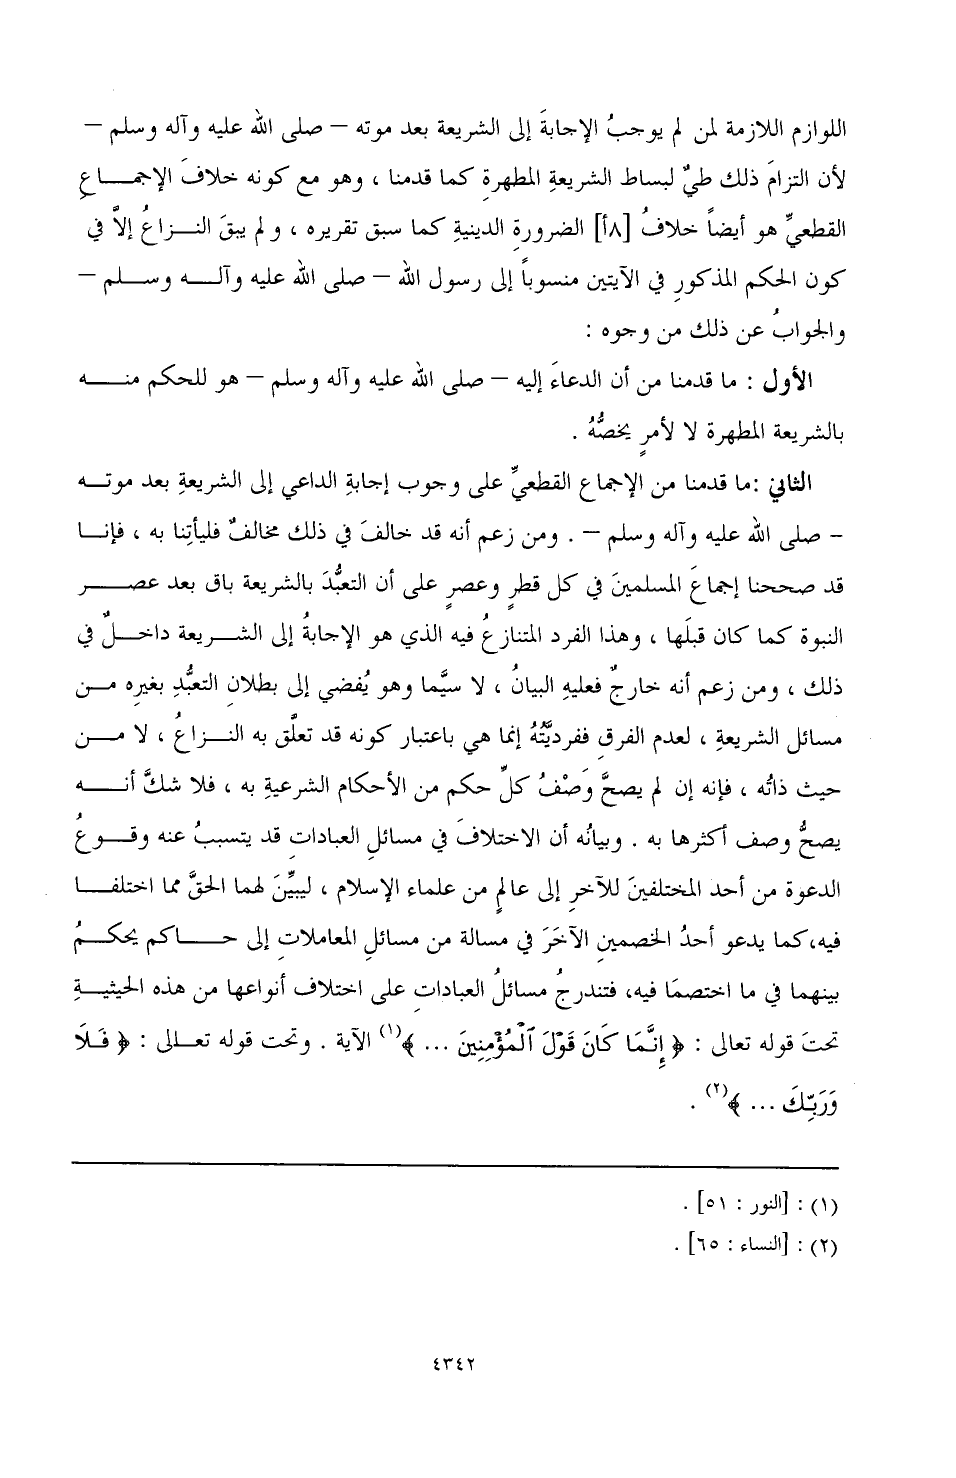 اللوازم اللازمة لمن لم يوجبُ الإجابةَ إلى الشريعة بعد موته – صلى الله عليه وآله وسلم –
لأن التزامَ ذلك طيٌّ لبساط الشريعةِ المطهرةِ كما قدمنا ، وهو مع كونه خلافَ الإجمـــاعِ
القطعيِّ هو أيضاً خلافُ [٨أ] الضرورةِ الدينيةِ كما سبق تقريره ، و لم يبقَ النــزاعُ إلاَّ في
كون الحكم المذكورِ في الآيتين منسوباً إلى رسول الله – صلى الله عليه وآلــه وســلم –
والجوابُ عن ذلك من وجوه :
الأول : ما قدمنا من أن الدعاءَ إليه – صلى الله عليه وآله وسلم – هو للحكم منـــه
بالشريعة المطهرة لا لأمرٍ يخصُّهُ .
الثاني :ما قدمنا من الإجماع القطعيِّ على وجوب إجابةِ الداعي إلى الشريعةِ بعد موتــه
- صلى الله عليه وآله وسلم – . ومن زعم أنه قد خالفَ في ذلك مخالفٌ فليأتِنا به ، فإنــا
قد صححنا إجماعَ المسلمينَ في كل قطرٍ وعصرٍ على أن التعبُّدَ بالشريعة باق بعد عصـــر
النبوة كما كان قبلَها ، وهذا الفرد المتنازعُ فيه الذي هو الإجابةُ إلى الشـــريعة داخـــلٌ في
ذلك ، ومن زعم أنه خارجٌ فعليهِ البيانُ ، لا سيَّما وهو يُفضي إلى بطلانِ التعبُّدِ بغيرِه مــن
مسائل الشريعةِ ، لعدم الفرقِ ففرديَّتُهُ إنما هي باعتبار كونه قد تعلَّق به النــزاعُ ، لا مـــن
حيث ذاتُه ، فإنه إن لم يصحَّ وَصْفُ كلِّ حكم من الأحكام الشرعيةِ به ، فلا شكَّ أنـــه
يصحُّ وصف أكثرها به . وبيانُه أن الاختلافَ في مسائلِ العباداتِ قد يتسببُ عنه وقــوعُ
الدعوة من أحد المختلفينَ للآخرِ إلى عالمٍ من علماء الإسلام ، ليبيِّنَ لهما الحقَّ مما اختلفــا
فيه،كما يدعو أحدُ الخصمينِ الآخَرَ في مسالة من مسائل المعاملاتِ إلى حـــاكم يحكــمُ
بينهما في ما اختصمَا فيه، فتندرجُ مسائلُ العباداتِ على اختلاف أنواعها من هذه الحيثيــةِ
تحتَ قوله تعالى : ﴿ إِنَّمَا كَانَ قَوْلَ ٱلْمُؤْمِنِينَ ... ﴾(١) الآية . وتحت قوله تعــالى : ﴿ فَلَا
وَرَبِّكَ ... ﴾(٢) .
(١) : [النور : ٥١] .
(٢) : [النساء : ٦٥] .
٤٣٤٢